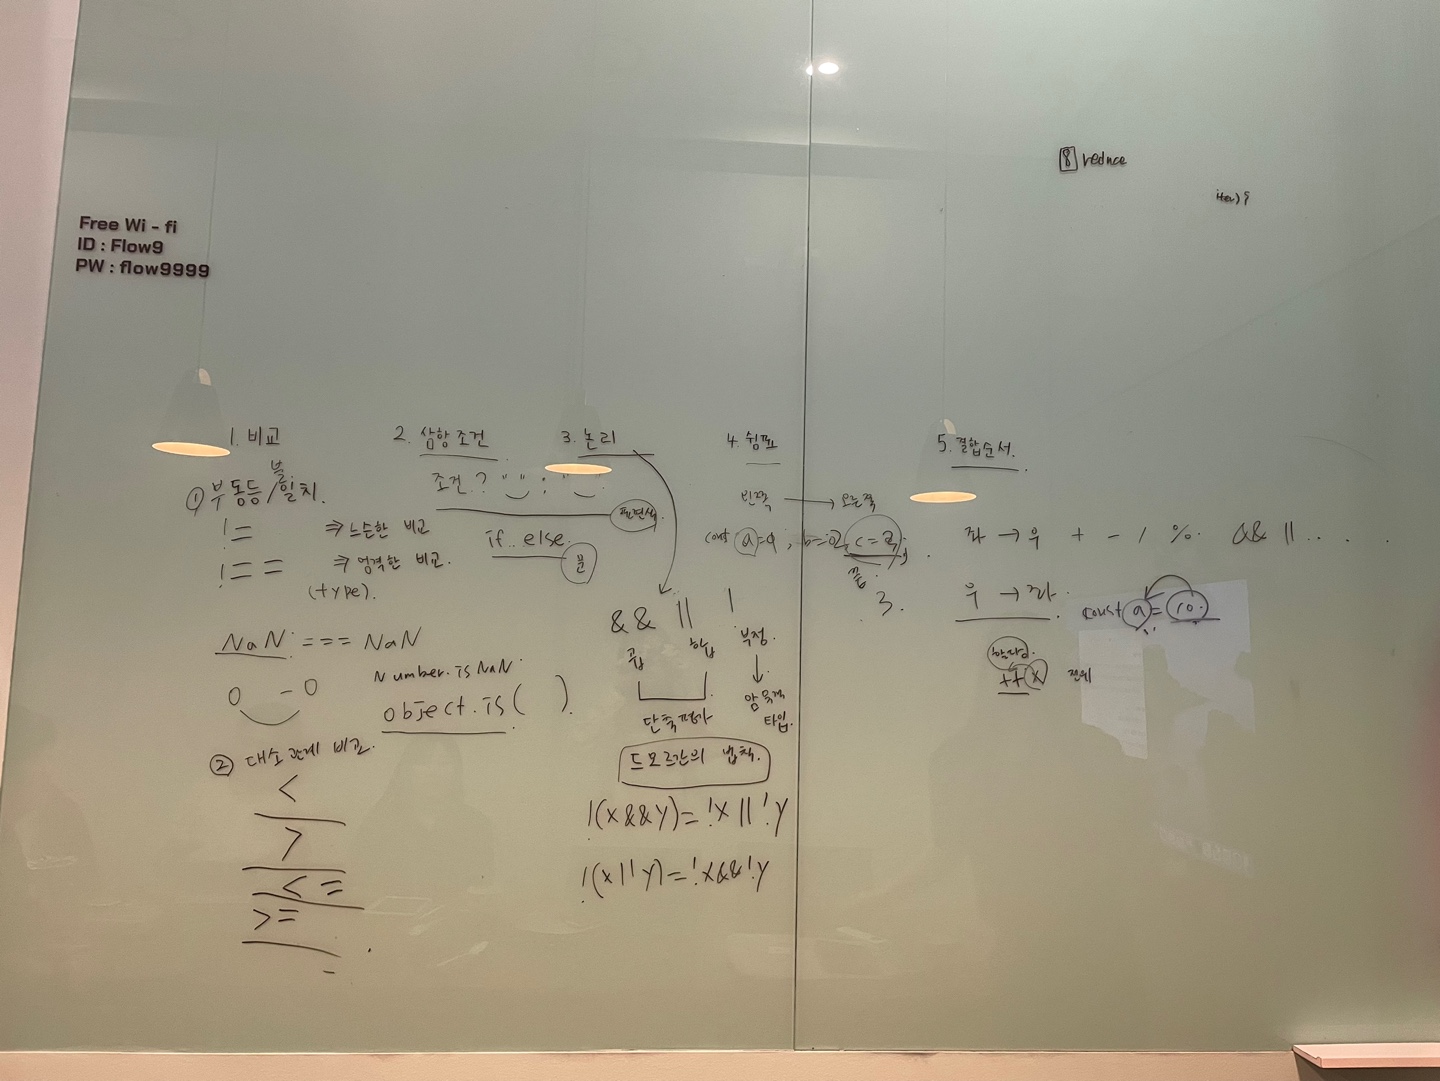 8 reduce
Free Wi - fi
ID : Flow9
PW : flow9999
1. 비교
① 부동등/불일치.
!= ⇒ 느슨한 비교
!== ⇒ 엄격한 비교.
(type).
NaN === NaN
0 -0
Number.isNaN
object.is( ).
② 대소관계 비교.
<
>
<=
>=
2. 삼항조건
조건? " " : " "
표현식.
if..else.
문
3. 논리
&& || !
곱 합 부정.
단축평가
암묵적
타입.
드모르간의 법칙.
!(x&&y)=!x||!y
!(x||y)=!x&&!y
4. 쉼표
왼쪽 → 오른쪽
const a=1, b=2, c=3;
3.
5. 결합순서.
좌 → 우 + - / % && || . . . .
우 → 좌. const a = 10.
할당.
++x 전위